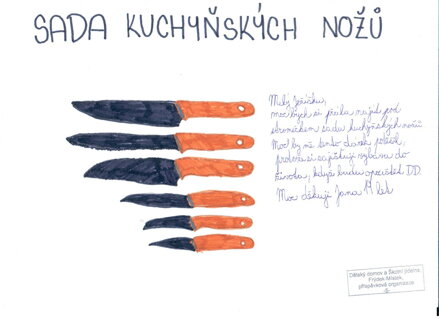 SADA KUCHYŇSKÝCH NOŽŮ
Milý Ježíšku,
moc bych si přála najít pod
stromečkem sadu kuchyňských nožů
Moc by mě tento dárek potěšil,
protože si zajišťuji výbavu do
života, když budu opouštět DD.
Moc děkuji Jana 17 let
Dětský domov a Školní jídelna,
Frýdek-Místek,
příspěvková organizace